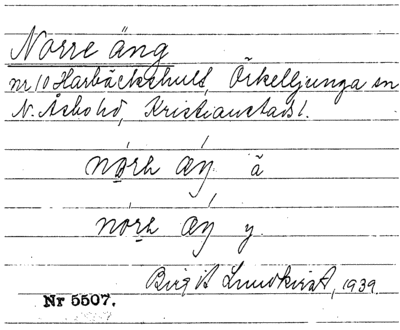 Norre äng
nr 10 Harbäckshult, Örkelljunga sn
N. Åsbo hd, Kristianstads l.
nórh æŋ ä
nórh æŋ y.
Birgit Lundkvist, 1939.
Nr 5507.